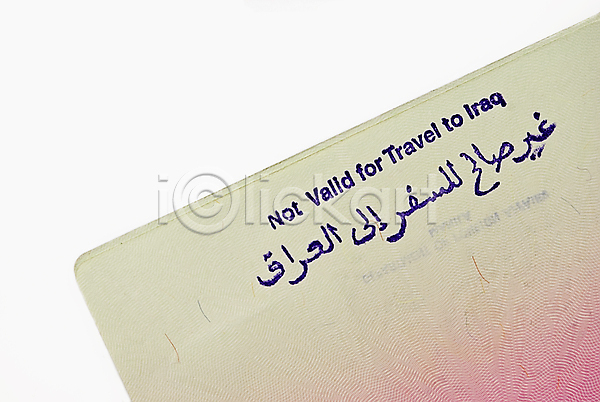 Not Valid for Travel to Iraq
غير صالح للسفر إلى العراق
iclickart